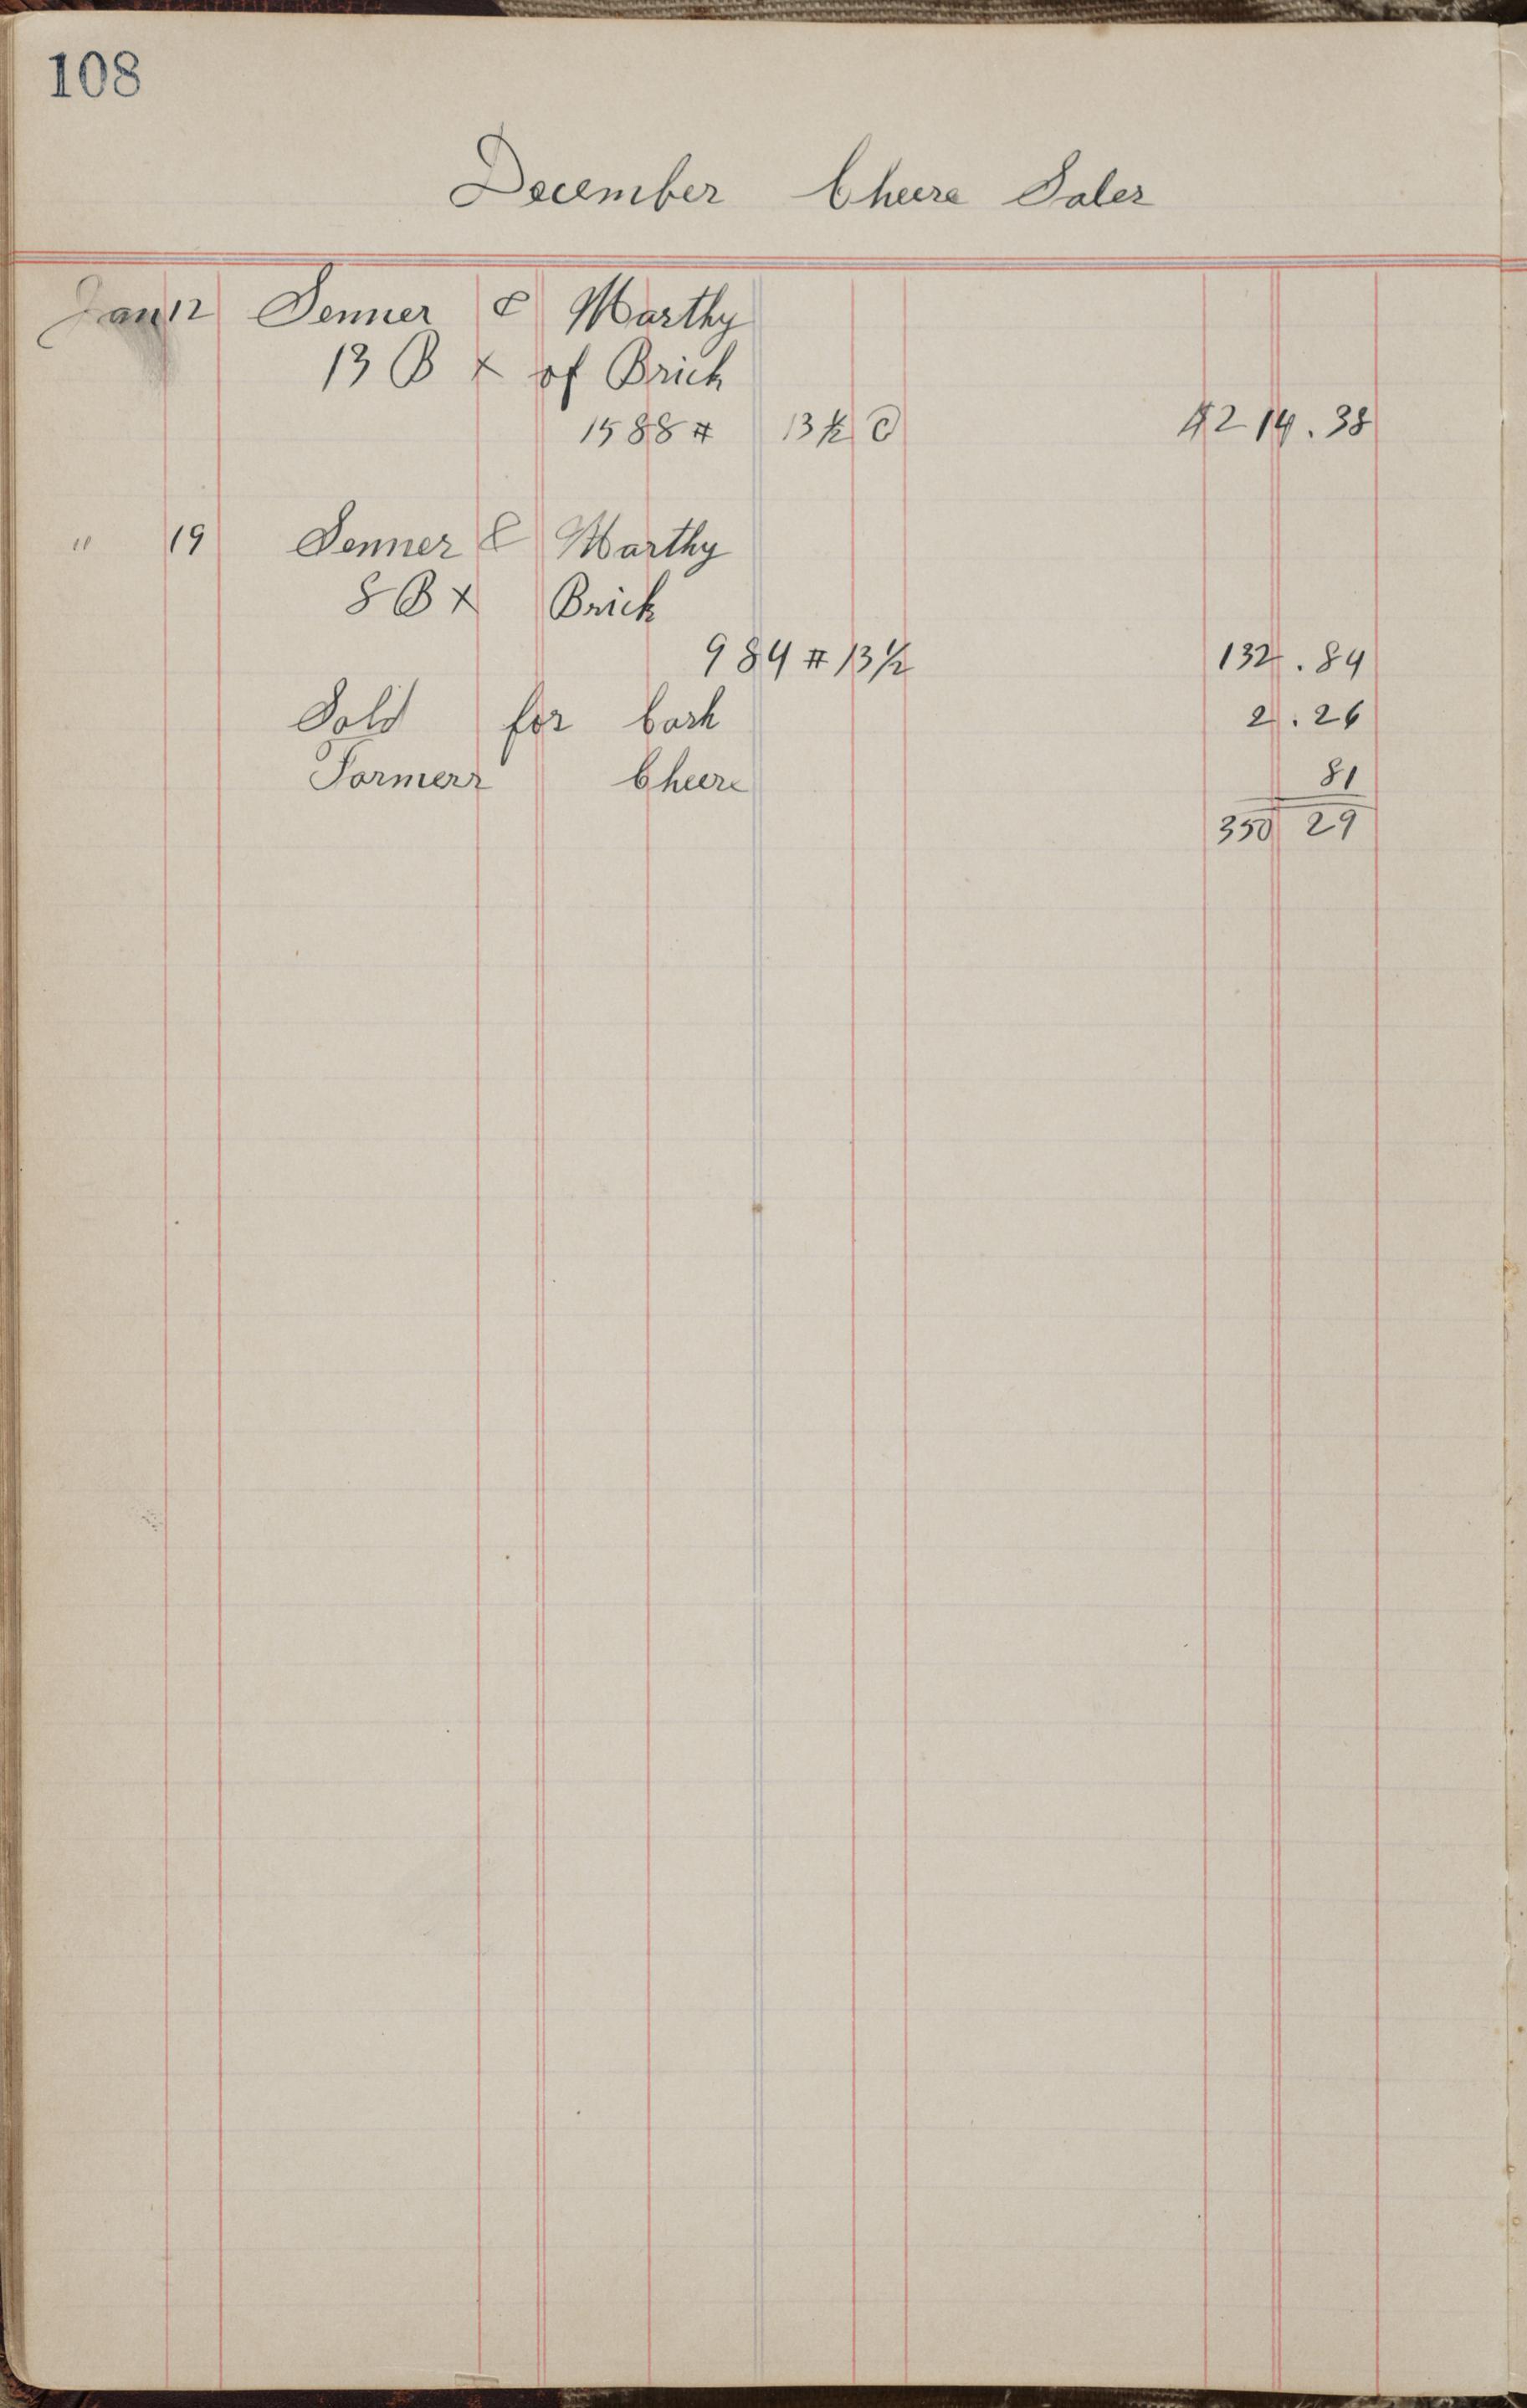 108
December Cheese Sales
Jan 12 Senner & Marthy
13 Bx of Brick
1588# 13½ @ $214.38
" 19 Senner & Marthy
8 Bx Brick
984 # 13½ 132.84
Sold for Cash 2.26
Farmers Cheese 81
350 29